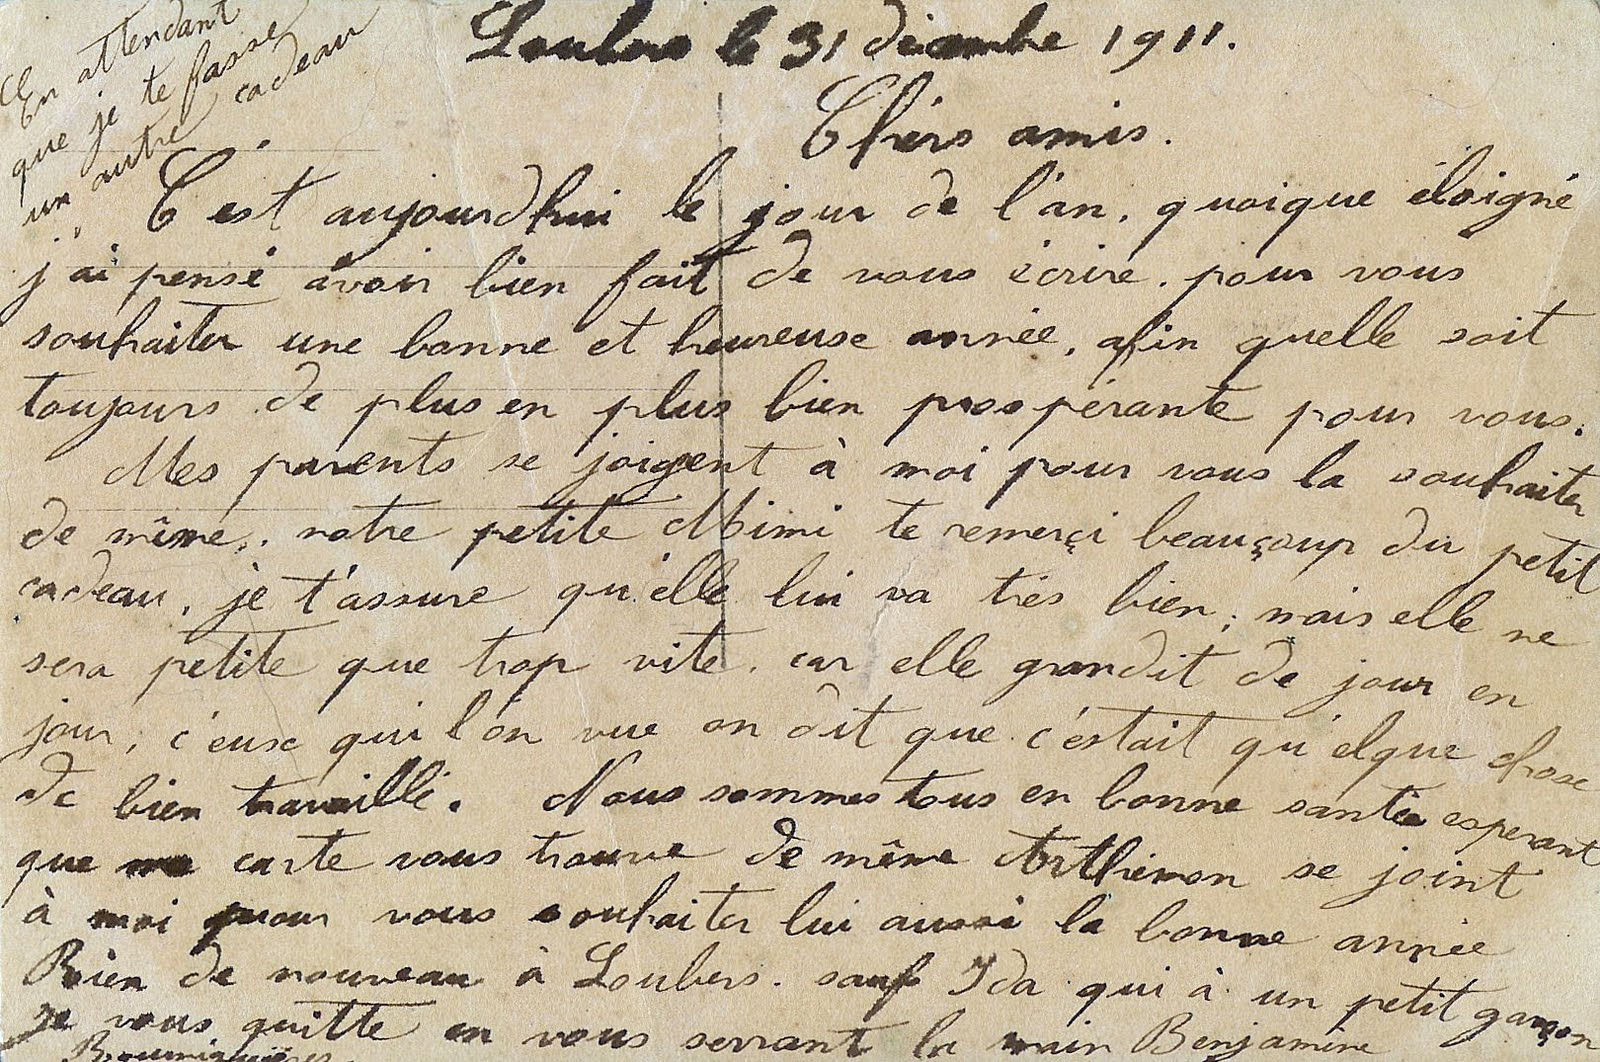 En attendant
que je te fasse
un autre cadeau
Loubers le 31 décembre 1911.
Chèrs amis.
C'est aujourdhui le jour de l'an, quoique éloigné
j'ai pensé avoir bien fait de vous écrire. pour vous
souhaiter une bonne et heureuse année, afin quelle soit
toujours de plus en plus bien prospérante pour vous.
Mes parents se joigent à moi pour vous la souhaiter
de même,. notre petite Mimi te remerçi beauçoup du petit
cadeau, je t'assure qu'elle lui va très bien; mais elle ne
sera petite que trop vite. car elle grandit de jour en
jour, c'euse qui l'on vue on dit que c'estait qu'elque chose
de bien travaillé. Nous sommes tous en bonne santée esperant
que ma carte vous trouve de même Arthémon se joint
à moi pour vous souhaiter lui aussi la bonne année
Rien de nouveau à Loubers. sauf Ida qui à un petit garçon
Je vous quitte en vous serrant la main Benjamine
Boumiguières